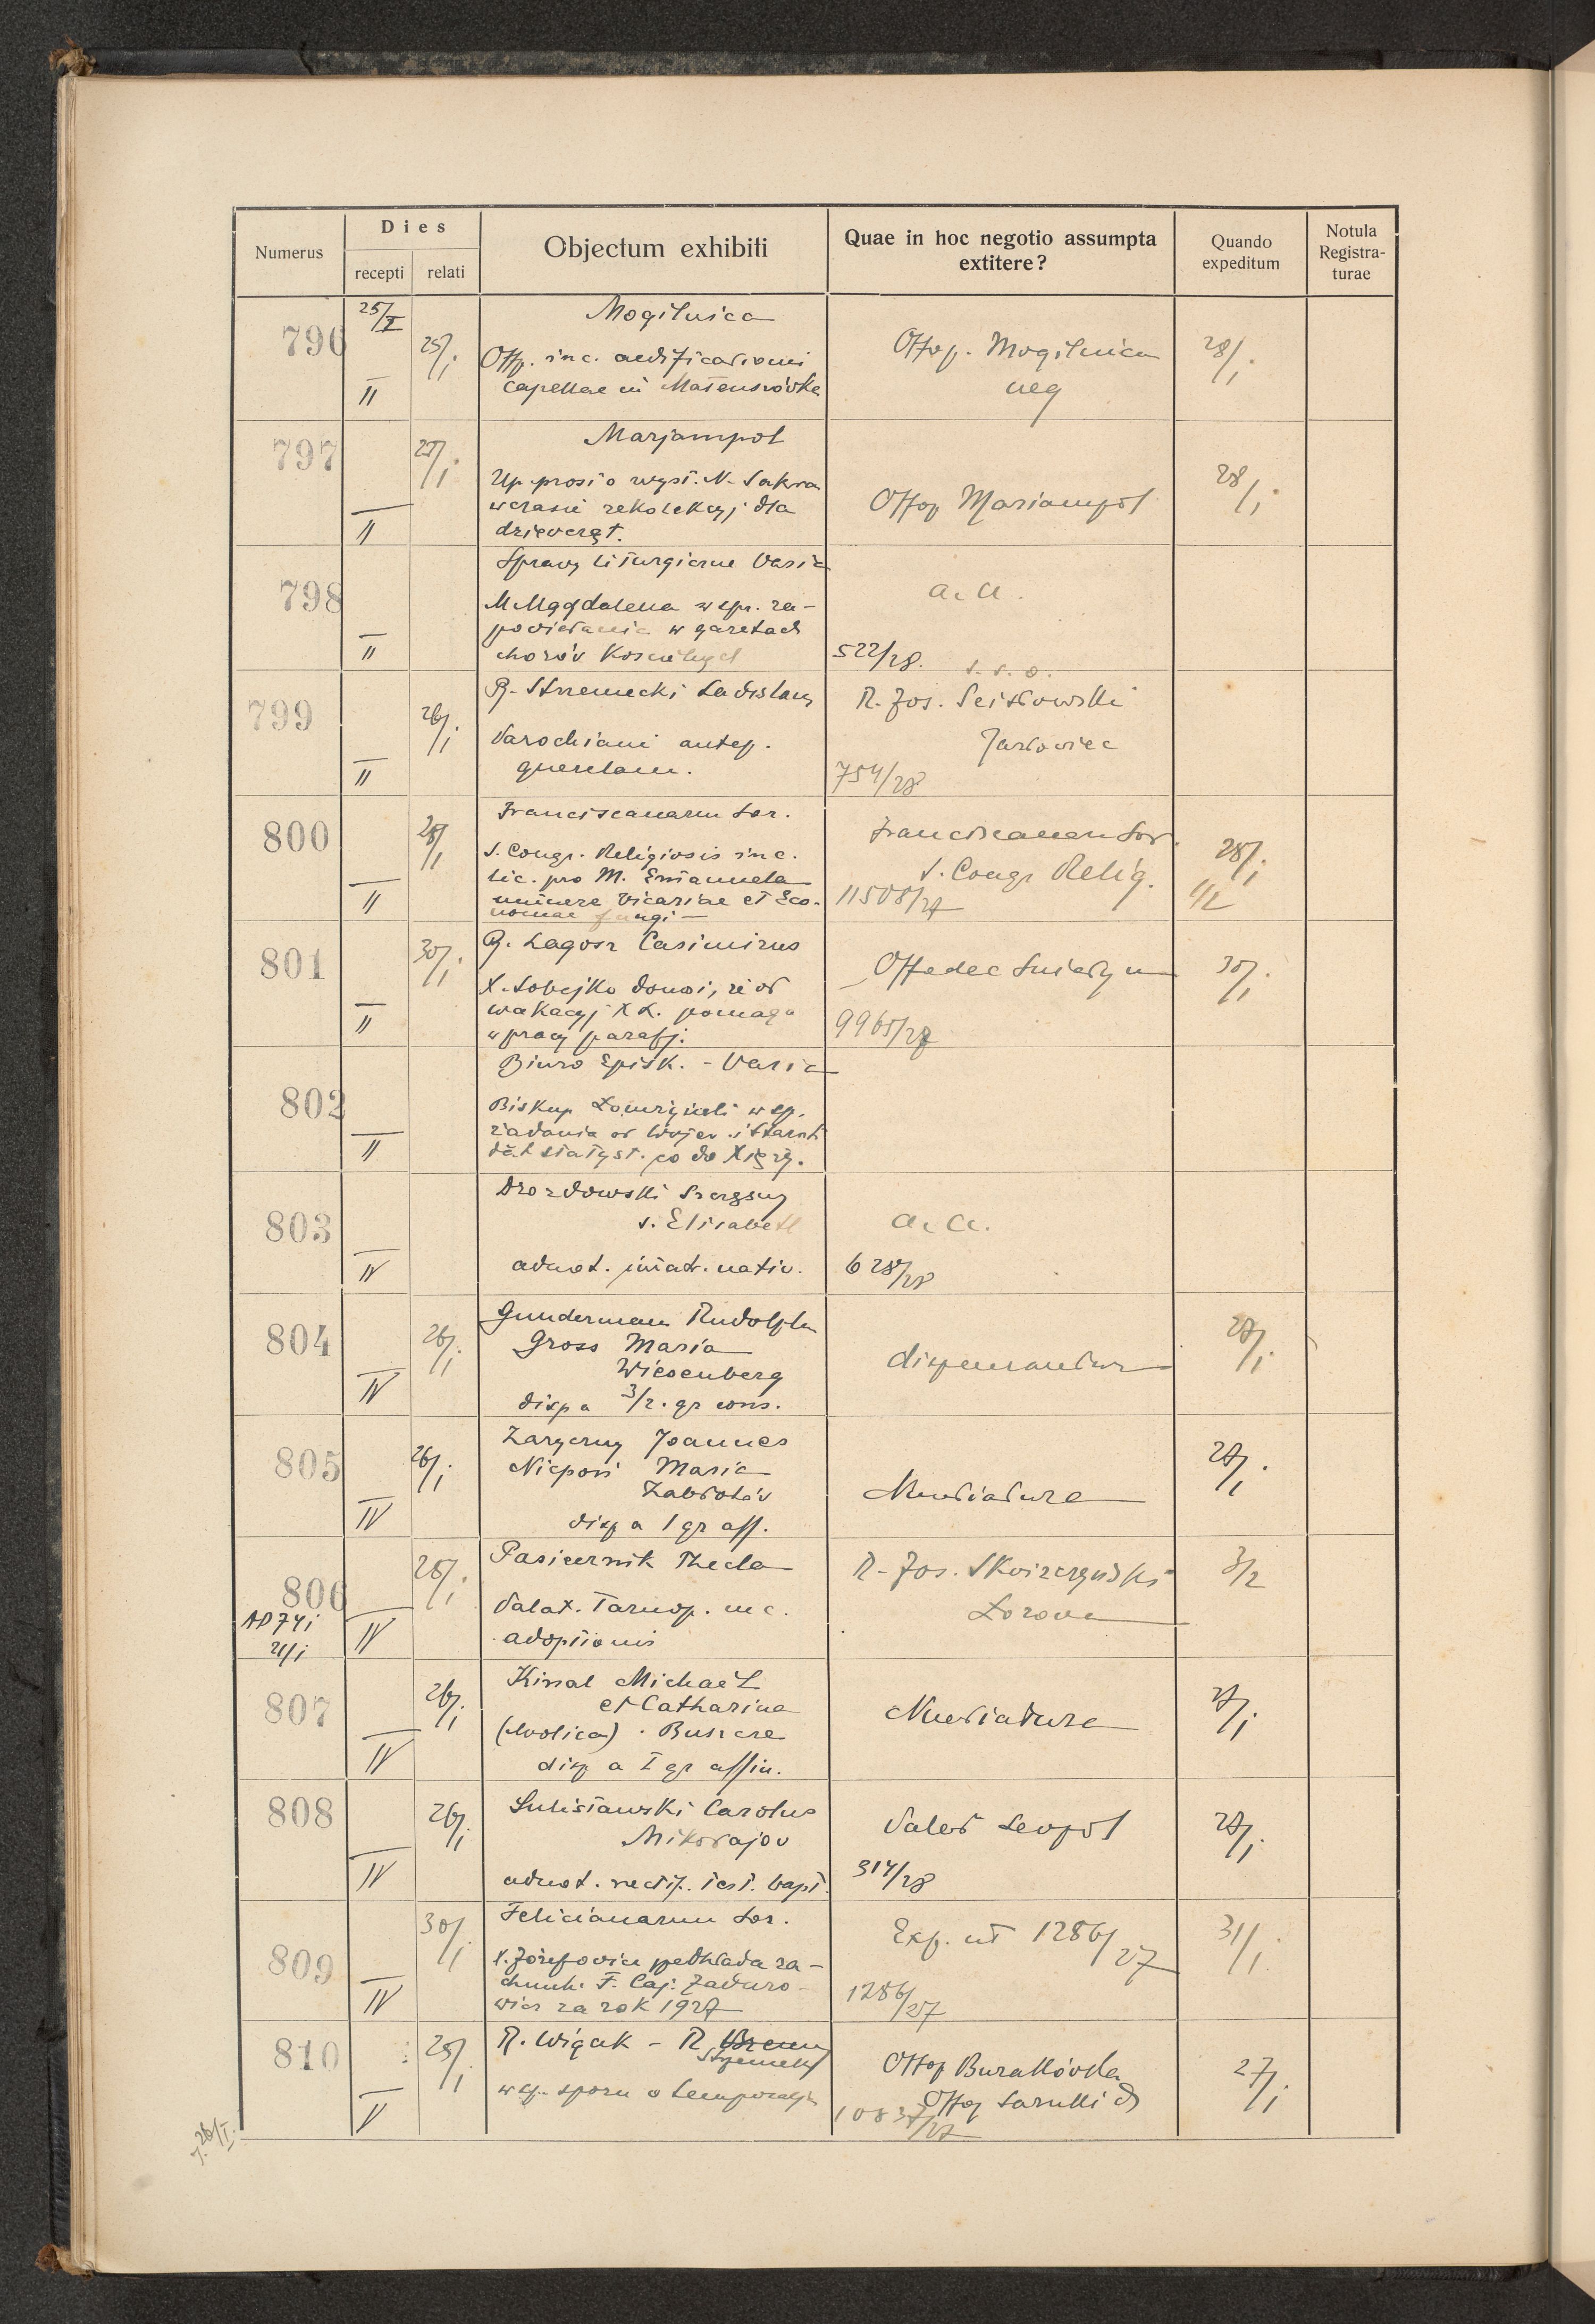 Numerus
Dies
recepti relati
Objectum exhibiti
Quae in hoc negotio assumpta
extitere?
Quando
expeditum
Notula
Registra-
turae
796
25/I
II
25/I
Mogilnica
Off. inc. aedificationi
capellae in
Offop. Mogilnica
neg
28/I
797
II
Marjampol
Up. prosi o wyst. N. Sakra
w czasie rekolekcyj dla
dziewcząt.
Offop Mariampol
28/I
798
II
Sprawy liturgiczne Varia
M Magdalena w spr. za-
powiadania w gazetach
chorów Kościelnych
a. a.
522/28.
799
II
26/I
R. Strzemecki Ladislaus
Parochiani antep.
querelam.
R. Jos.
Jazłowiec
754/28
800
II
Franciscanarum Sor.
S. Congr. Religiosis inc.
lic. pro M. Emanuela
munere Vicariae et Eco-
nomae fungi
Franciscanarum Sor.
S. Congr Relig.
11508/27
28/I
1/2
801
II
30/I
R. Lagosz Casimirus
X. Sobejko donosi, że od
wakacyj X L. pomaga
w pracy parafj.
Offedec Sniatyn
9965/27
30/I
802
II
Biuro Episk. - Varia
Biskup Łomżyński w sp.
żądania od Wojew. i Starost
dat statyst. co do Xięży.
803
IV
Drozdowski
s. Elisabeth
adnot. matr. nativ.
a. a.
628/28
804
IV
26/I
Gundermann Rudolph
Gross Maria
Wiesenberg
disp a 3/2. gr cons.
dispensantur
27/I
805
IV
26/I
Joannes
Niepoń Maria
Zabłotów
disp a I gr aff.
Nuntiatura
27/I
806
AD 74i
21/i
IV
Pasiecznik Thecla
Palat. Tarnop. inc.
adoptionis
R. Jos.
3/2
807
IV
26/I
Kinal Michaël
et Catharina
(Wolica) . Buszcze
disp a I gr affin.
Nuntiatura
27/I
808
IV
26/I
Sulisławski Carolus
Mikołajów
adnot. rectif. test. bapt.
Palat Leopol
314/28
27/I
809
IV
30/I
Felicianarum Sor.
s. Józefowicz przedkłada ra-
chunk. F. Caj. Zaduro-
wicz za rok 1927
Exp. ut 1286/27
1286/27
31/I
810
V
25/I
R. Wigak - R
w sp. sporu o temporalja
Offop Burakówka
Offop
10837/27
27/I
26/I.